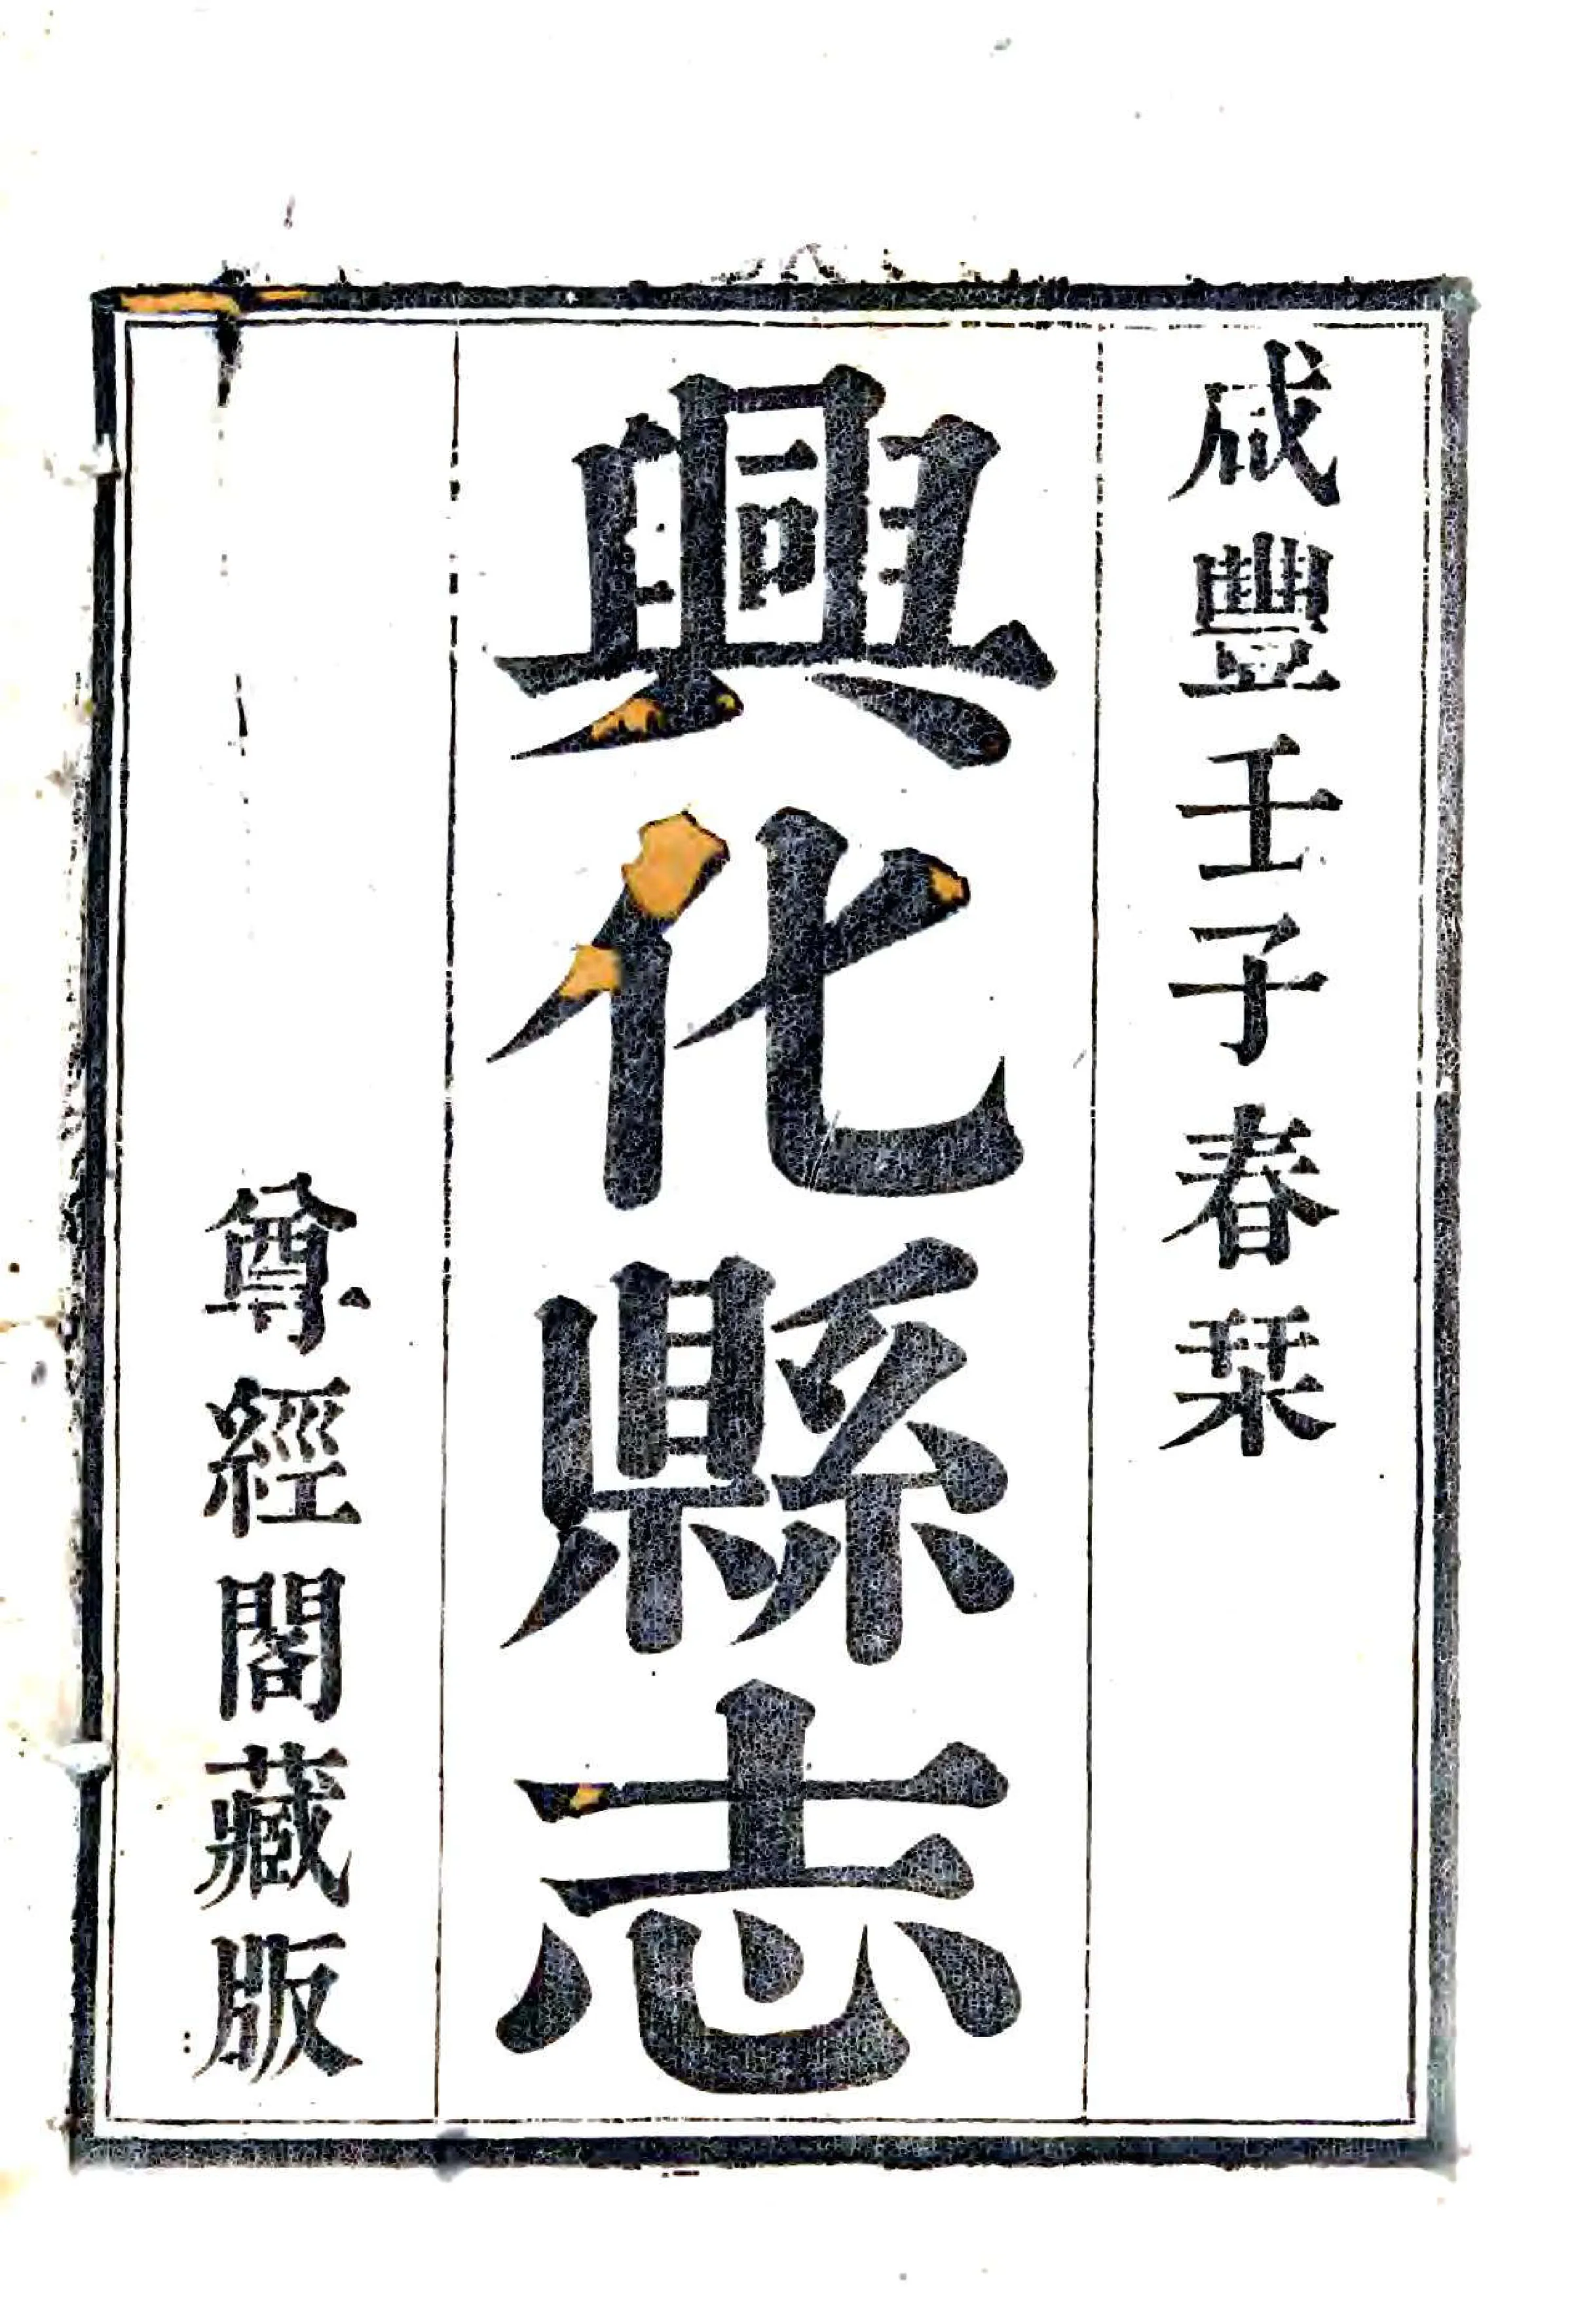 咸豐壬子春栞
興化縣志
尊經閣藏版